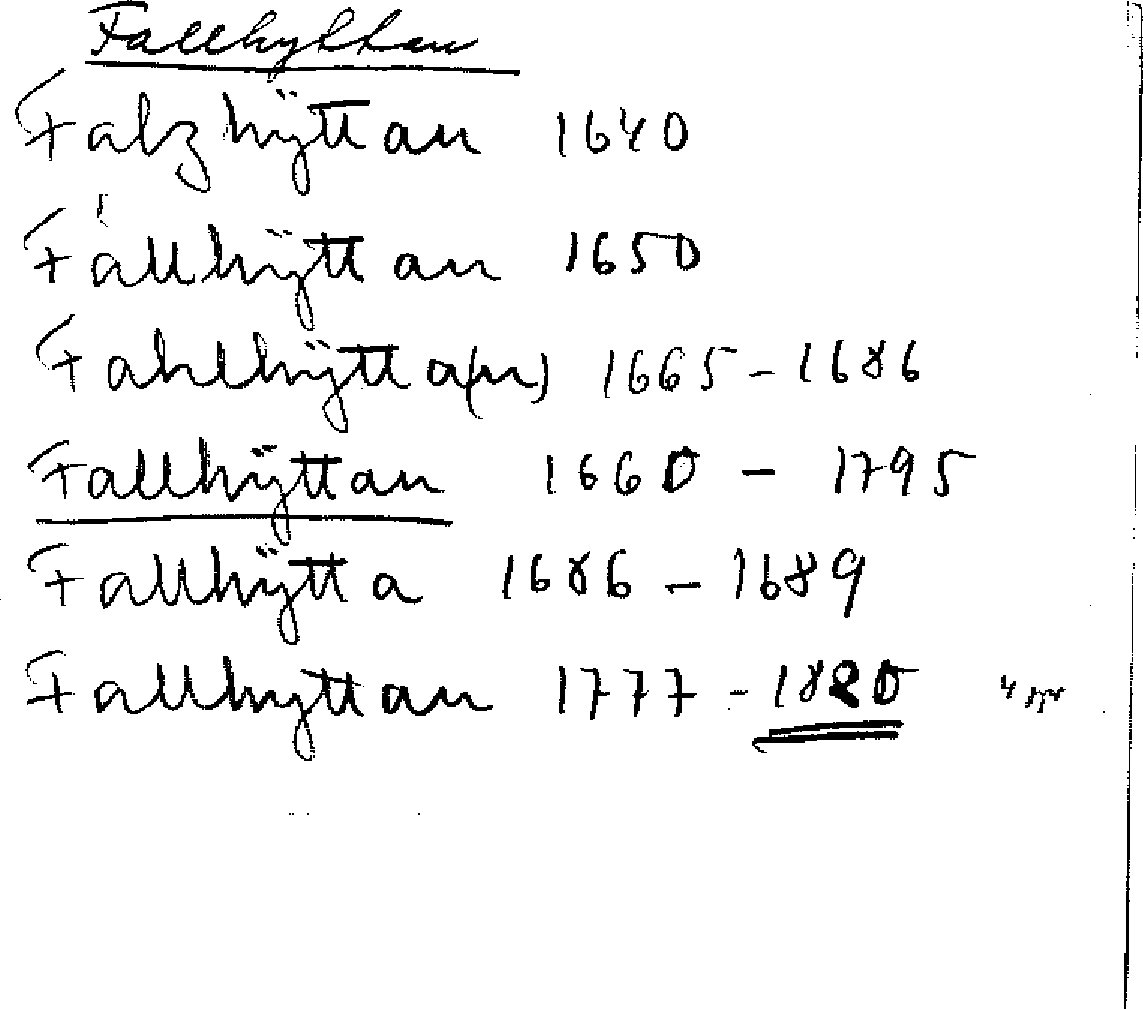 Fallhyttan
Falzhÿttan 1640
Fállhÿttan 1650
Fahlhÿtta(n) 1665-1686
Fallhÿttan 1660 - 1795
Fallhÿtta 1686 - 1689
Fallhyttan 1777 - 1820